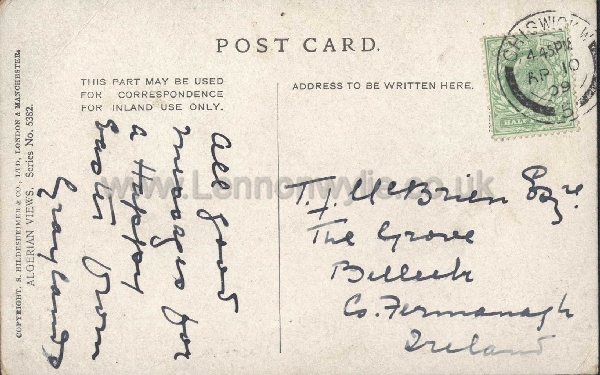 POST CARD.
THIS PART MAY BE USED
FOR CORRESPONDENCE
FOR INLAND USE ONLY.
ADDRESS TO BE WRITTEN HERE.
COPYRIGHT. S. HILDESHEIMER & CO., LTD., LONDON & MANCHESTER.
ALGERIAN VIEWS. Series No. 5382.
All good
messages for
a Happy
Easter from
Graylands
T. J. McBrien Esqre.
The Grove
Belleek
Co. Fermanagh
Ireland
CHISWICK W
4.45 PM
AP 10
09
HALF
www.Lennonwylie.co.uk